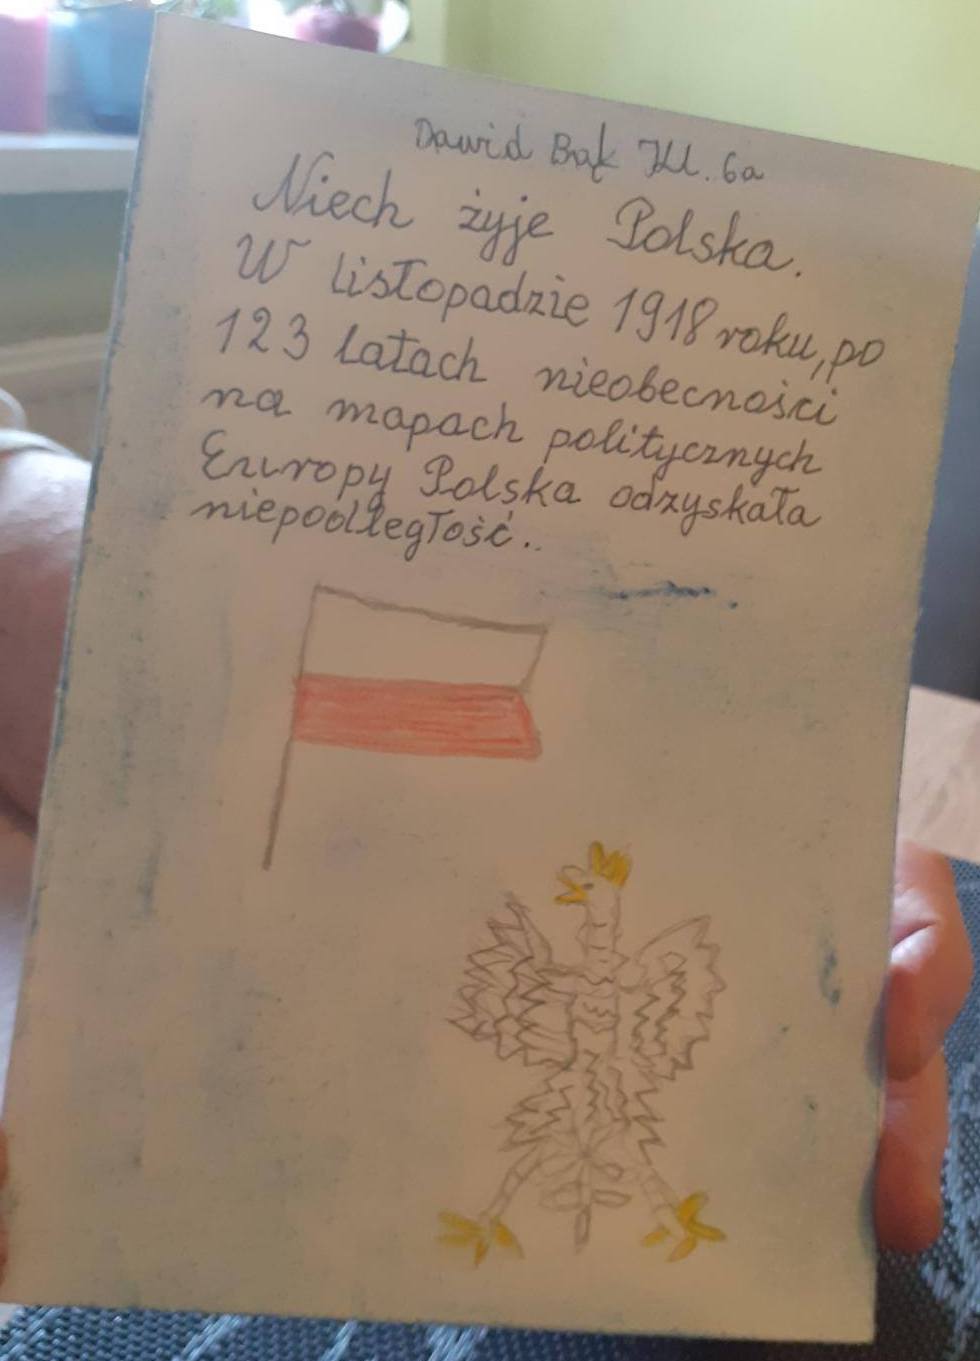 Dawid Bąk Kl. 6a
Niech żyje Polska.
W listopadzie 1918 roku, po
123 latach nieobecności
na mapach politycznych
Europy Polska odzyskała
niepodległość..